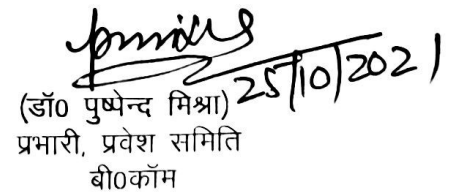 25/10/2021
(डॉ0 पुष्पेन्द मिश्रा)
प्रभारी, प्रवेश समिति
बी0कॉम